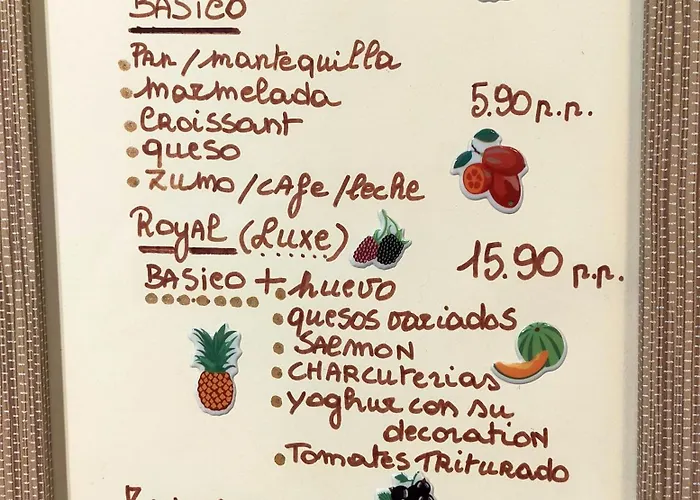 BASICO
PAN/mantequilla
marmelada
5.90 p.p.
CROISSANT
queso
ZUMO/CAFe/leche
ROYAL (Luxe)
15.90 p.p.
BASICO + huevo
quesos variados
SALMON
CHARCUTERIAS
yoghur con su
decoration
TOMATES TRITURADO